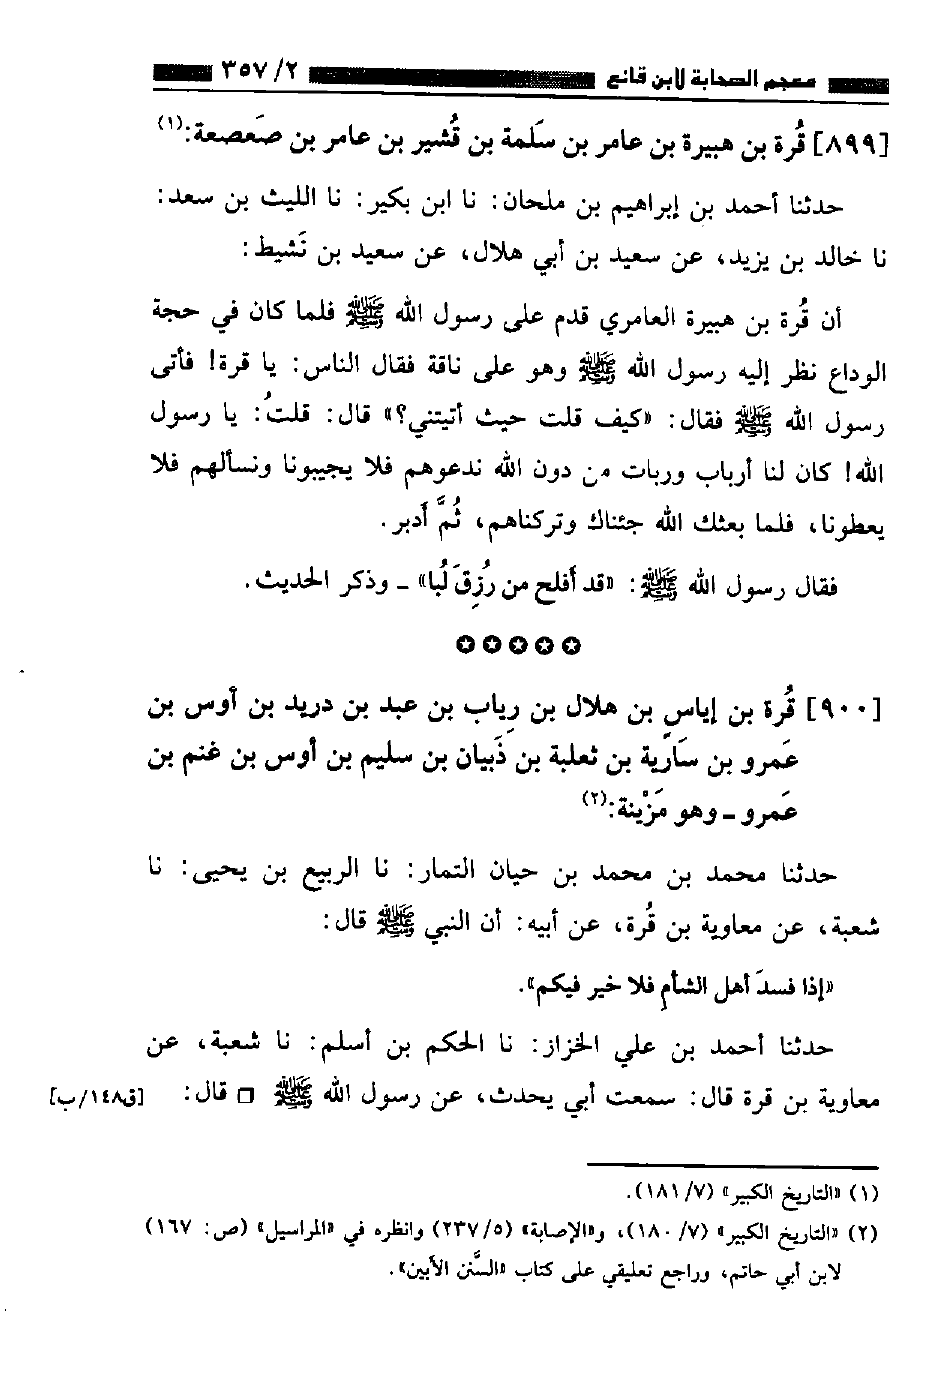 معجم الصحابة لابن قانع ٢/ ٣٥٧
[٨٩٩] قُرة بن هبيرة بن عامر بن سَلَمة بن قُشير بن عامر بن صَعصعة:(١)
حدثنا أحمد بن إبراهيم بن ملحان: نا ابن بكير: نا الليث بن سعد:
نا خالد بن يزيد، عن سعيد بن أبي هلال، عن سعيد بن نَشيط:
أن قُرة بن هبيرة العامري قدم على رسول الله ﷺ فلما كان في حجة
الوداع نظر إليه رسول الله ﷺ وهو على ناقة فقال الناس: يا قرة! فأتى
رسول الله ﷺ فقال: «كيف قلت حيث أتيتني؟» قال: قلتُ: يا رسول
الله! كان لنا أرباب وربات من دون الله ندعوهم فلا يجيبونا ونسألهم فلا
يعطونا، فلما بعثك الله جئناك وتركناهم، ثُمَّ أدبر.
فقال رسول الله ﷺ: «قد أفلح من رُزِقَ لُبا» ـ وذكر الحديث.
[٩٠٠] قُرة بن إياسِ بن هلال بن رِياب بن عبد بن دريد بن أوس بن
عَمرو بن سَارية بن ثعلبة بن ذَبيان بن سليم بن أوس بن غنم بن
عَمرو ـ وهو مَزْينة:(٢)
حدثنا محمد بن محمد بن حيان التمار: نا الربيع بن يحيى: نا
شعبة، عن معاوية بن قُرة، عن أبيه: أن النبي ﷺ قال:
«إذا فسدَ أهل الشأمِ فلا خير فيكم».
حدثنا أحمد بن علي الخزاز: نا الحكم بن أسلم: نا شعبة، عن
معاوية بن قرة قال: سمعت أبي يحدث، عن رسول الله ﷺ □ قال: [ق١٤٨/ب]
(١) «التاريخ الكبير» (٧/ ١٨١).
(٢) «التاريخ الكبير» (٧/ ١٨٠)، و«الإصابة» (٥/ ٢٣٧) وانظره في «المراسيل» (ص: ١٦٧)
لابن أبي حاتم، وراجع تعليقي على كتاب «السَّنن الأبين».